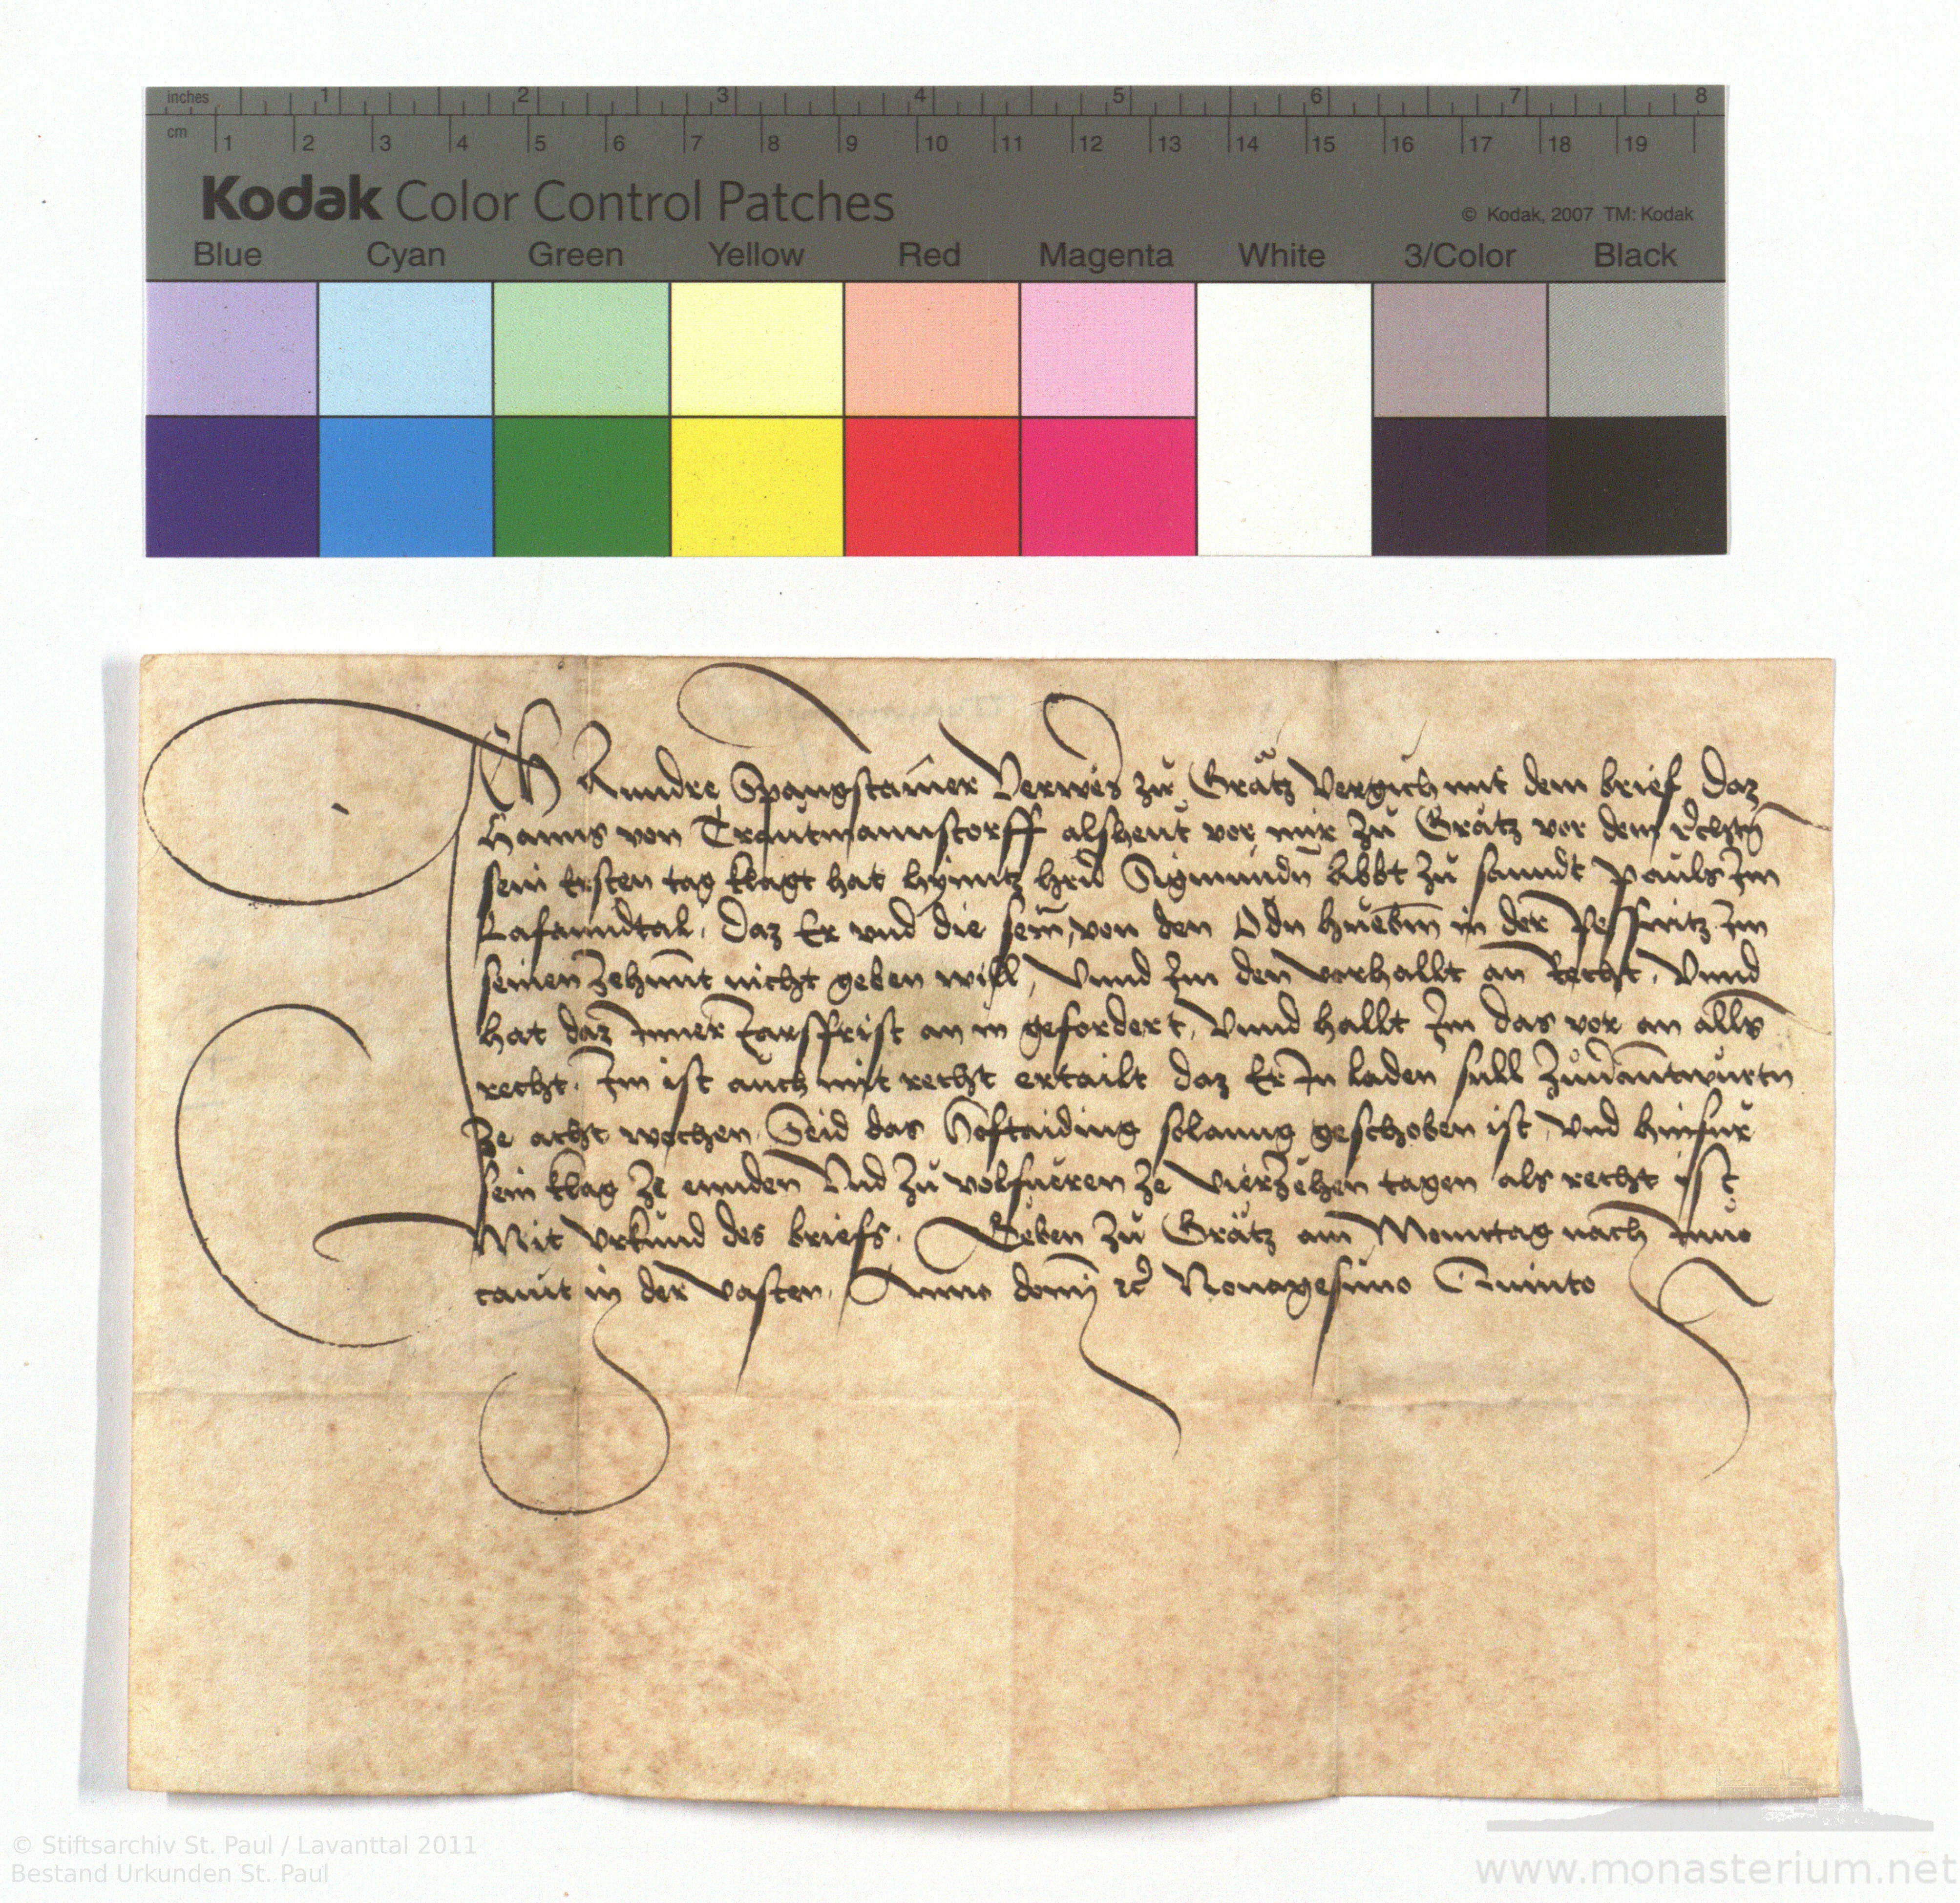 inches 1 2 3 4 5 6 7 8
cm 1 2 3 4 5 6 7 8 9 10 11 12 13 14 15 16 17 18 19
Kodak Color Control Patches
© Kodak, 2007 TM: Kodak
Blue Cyan Green Yellow Red Magenta White 3/Color Black
Ich Anndre Spangstainer Verwes zu Grätz Vergich mit dem brief Daz
Hanns von Trautmannstorff alsheut vor mir zu Grätz vor dem rechtn
sein Ersten tag klagt hat hynntz hrn Sigmundn Abbt zu sanndt pauls Im
Lafanndtal. Daz Er vnd die sein, von den Odn huebm in der Im
seinen Zehennt nicht geben will, Vnnd Im den vorhallt an Recht. Vnnd
hat daz Inner Jarsfrist an in gefordert, Vnnd hallt Im das vor an alls
recht. Im ist auch mit recht ertailt daz Er In laden sull
Ze acht wochen Seid das Hoftaiding solanng geschoben ist, vnd hinfur
sein klag Ze ennden Vnd zu volfueren Ze Vierzehen tagen als recht ist
Mit Vrkund des briefs. Geben zu Grätz am Monntag nach Inuo
cauit in der Vasten. Anno domj rc Nonagesimo Quinto
© Stiftsarchiv St. Paul / Lavanttal 2011
Bestand Urkunden St. Paul
www.monasterium.net